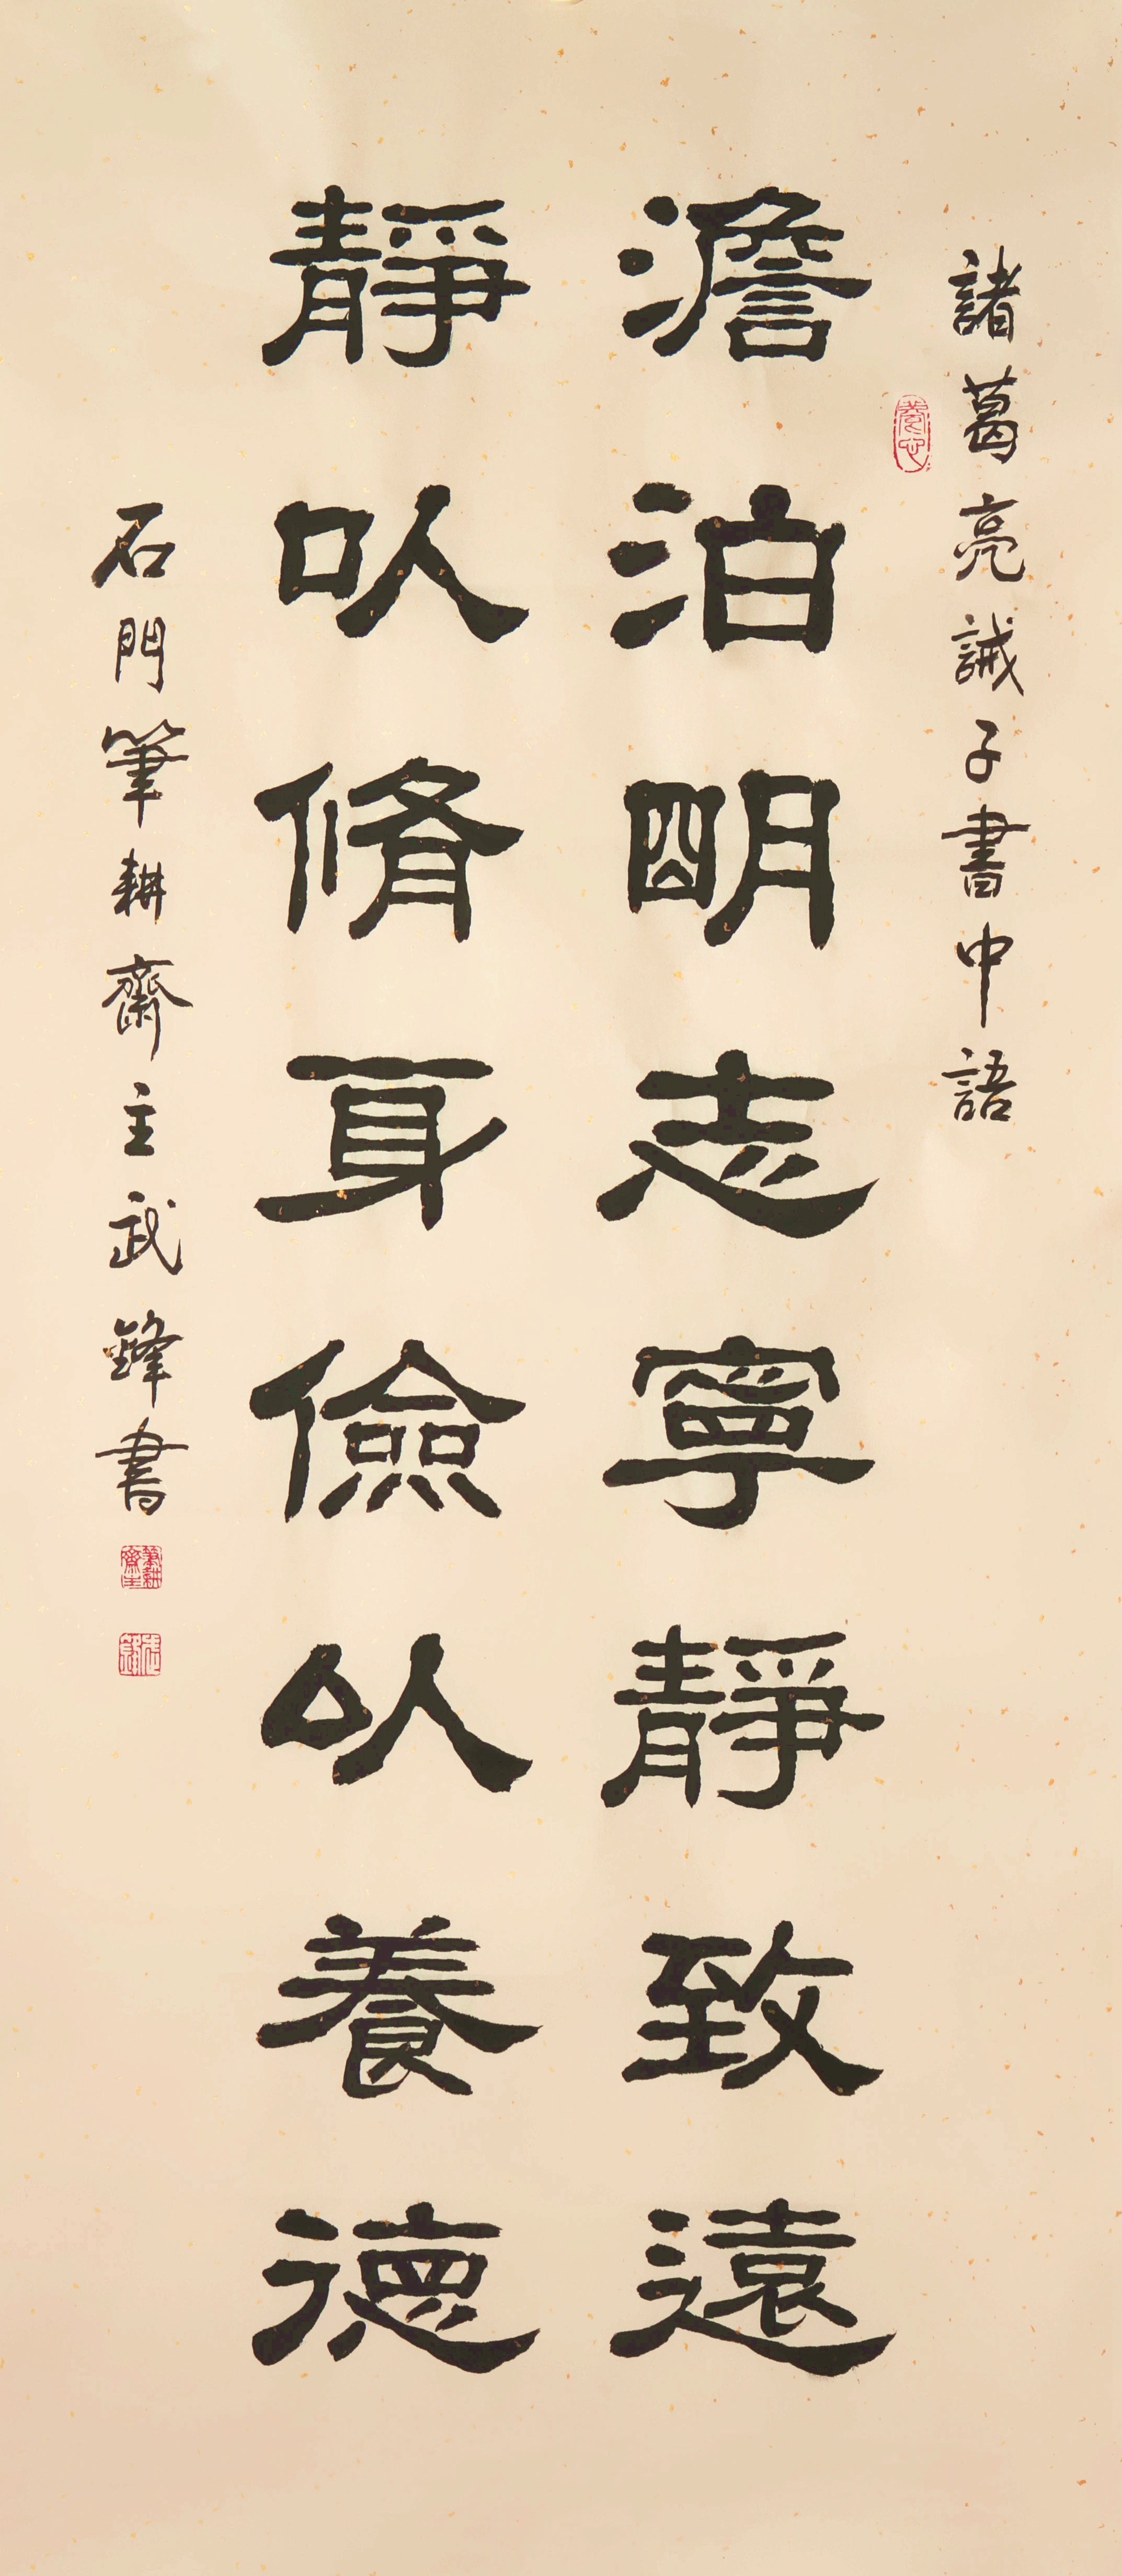 諸葛亮誡子書中語
澹泊明志寧靜致遠
靜以脩身儉以養德
石門筆耕齋主武鋒書
筆耕齋主